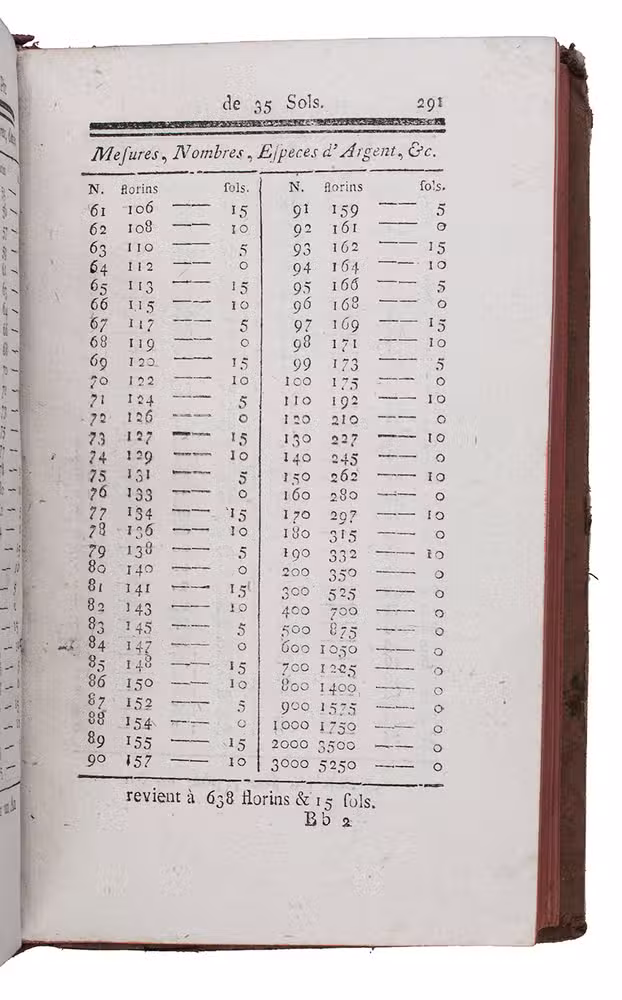 de 35 Sols. 291
Meſures, Nombres, Eſpeces d'Argent, &c.
N. florins ſols. N. florins ſols.
61 106 — 15 91 159 — 5
62 108 — 10 92 161 — 0
63 110 — 5 93 162 — 15
64 112 — 0 94 164 — 10
65 113 — 15 95 166 — 5
66 115 — 10 96 168 — 0
67 117 — 5 97 169 — 15
68 119 — 0 98 171 — 10
69 120 — 15 99 173 — 5
70 122 — 10 100 175 — 0
71 124 — 5 110 192 — 10
72 126 — 0 120 210 — 0
73 127 — 15 130 227 — 10
74 129 — 10 140 245 — 0
75 131 — 5 150 262 — 10
76 133 — 0 160 280 — 0
77 134 — 15 170 297 — 10
78 136 — 10 180 315 — 0
79 138 — 5 190 332 — 10
80 140 — 0 200 350 — 0
81 141 — 15 300 525 — 0
82 143 — 10 400 700 — 0
83 145 — 5 500 875 — 0
84 147 — 0 600 1050 — 0
85 148 — 15 700 1225 — 0
86 150 — 10 800 1400 — 0
87 152 — 5 900 1575 — 0
88 154 — 0 1000 1750 — 0
89 155 — 15 2000 3500 — 0
90 157 — 10 3000 5250 — 0
revient à 638 florins & 15 ſols.
Bb 2